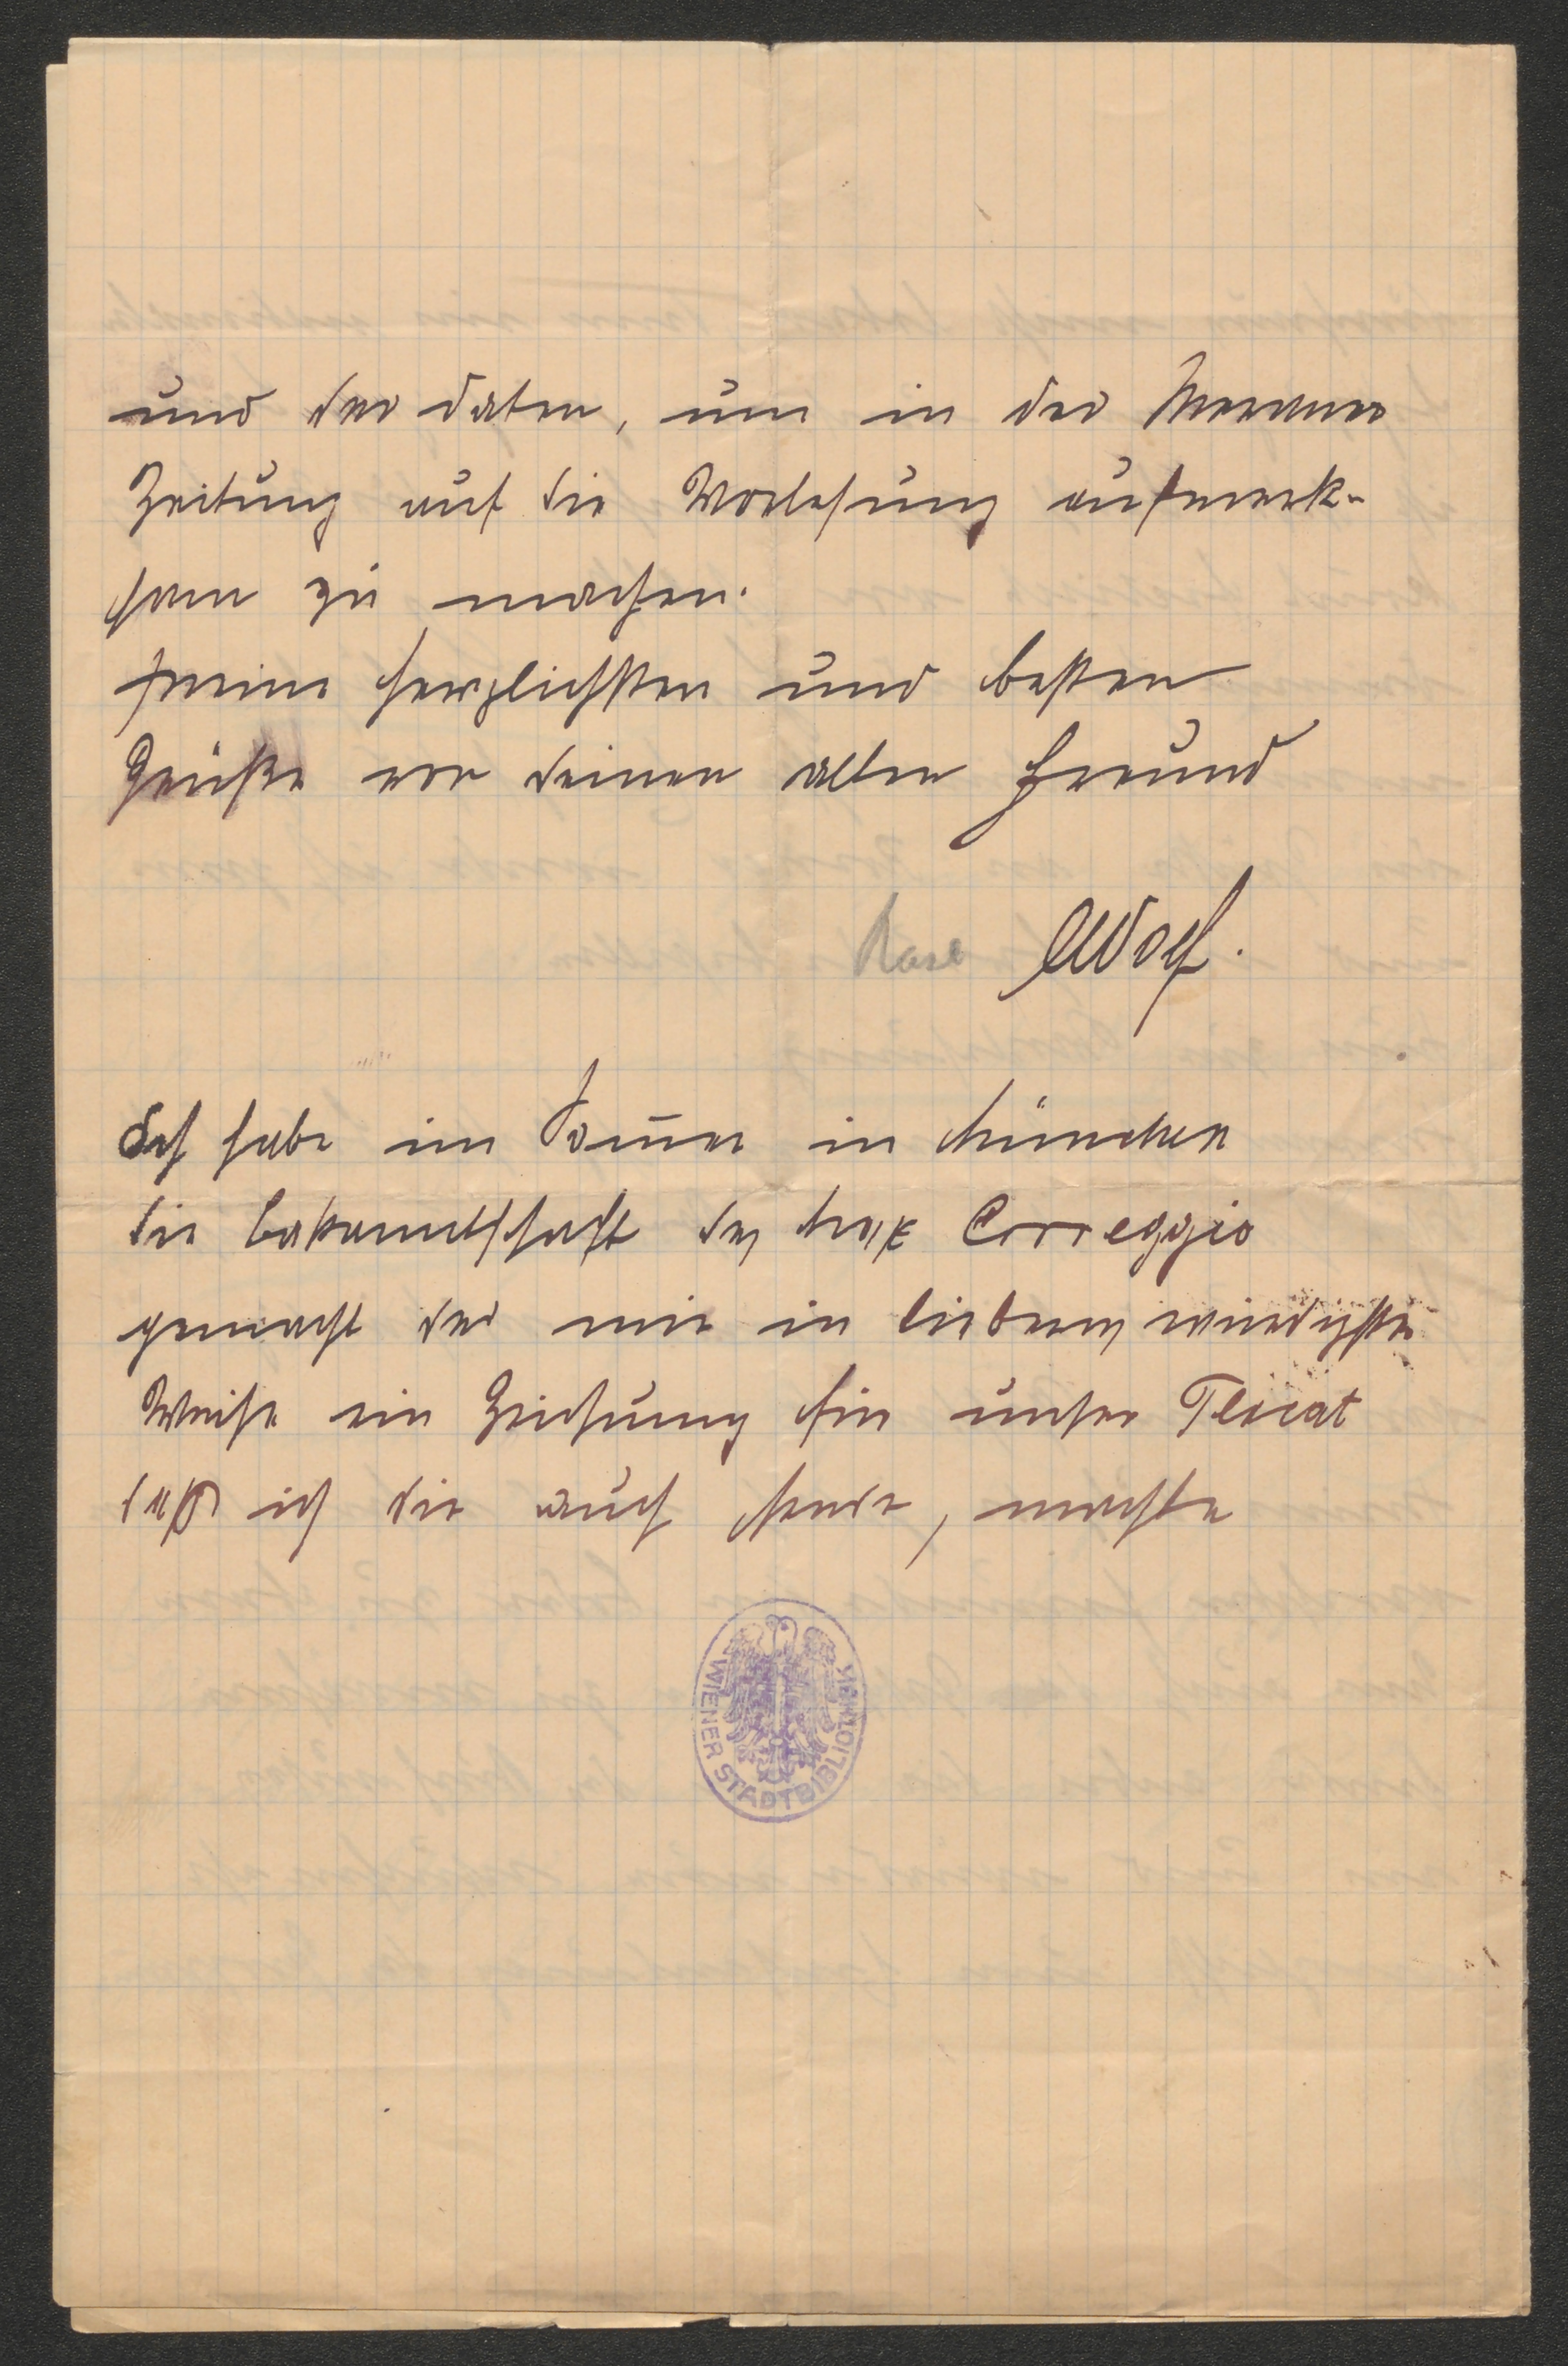 und der Daten, um in der Meraner
Zeitung auf die Vorlesung aufmerk-
sam zu machen.
Meine herzlichsten und besten
Grüße von deinen alten Freund
Adolf.
Ich habe im Som̄er in München
die Bekanntschaft des Max Correggio
gemacht der mir in liebenswürdigster
Weise ein Zeichung für unser Placat
daß ich dir auch sende, machte
WIENER STADTBIBLIOTHEK